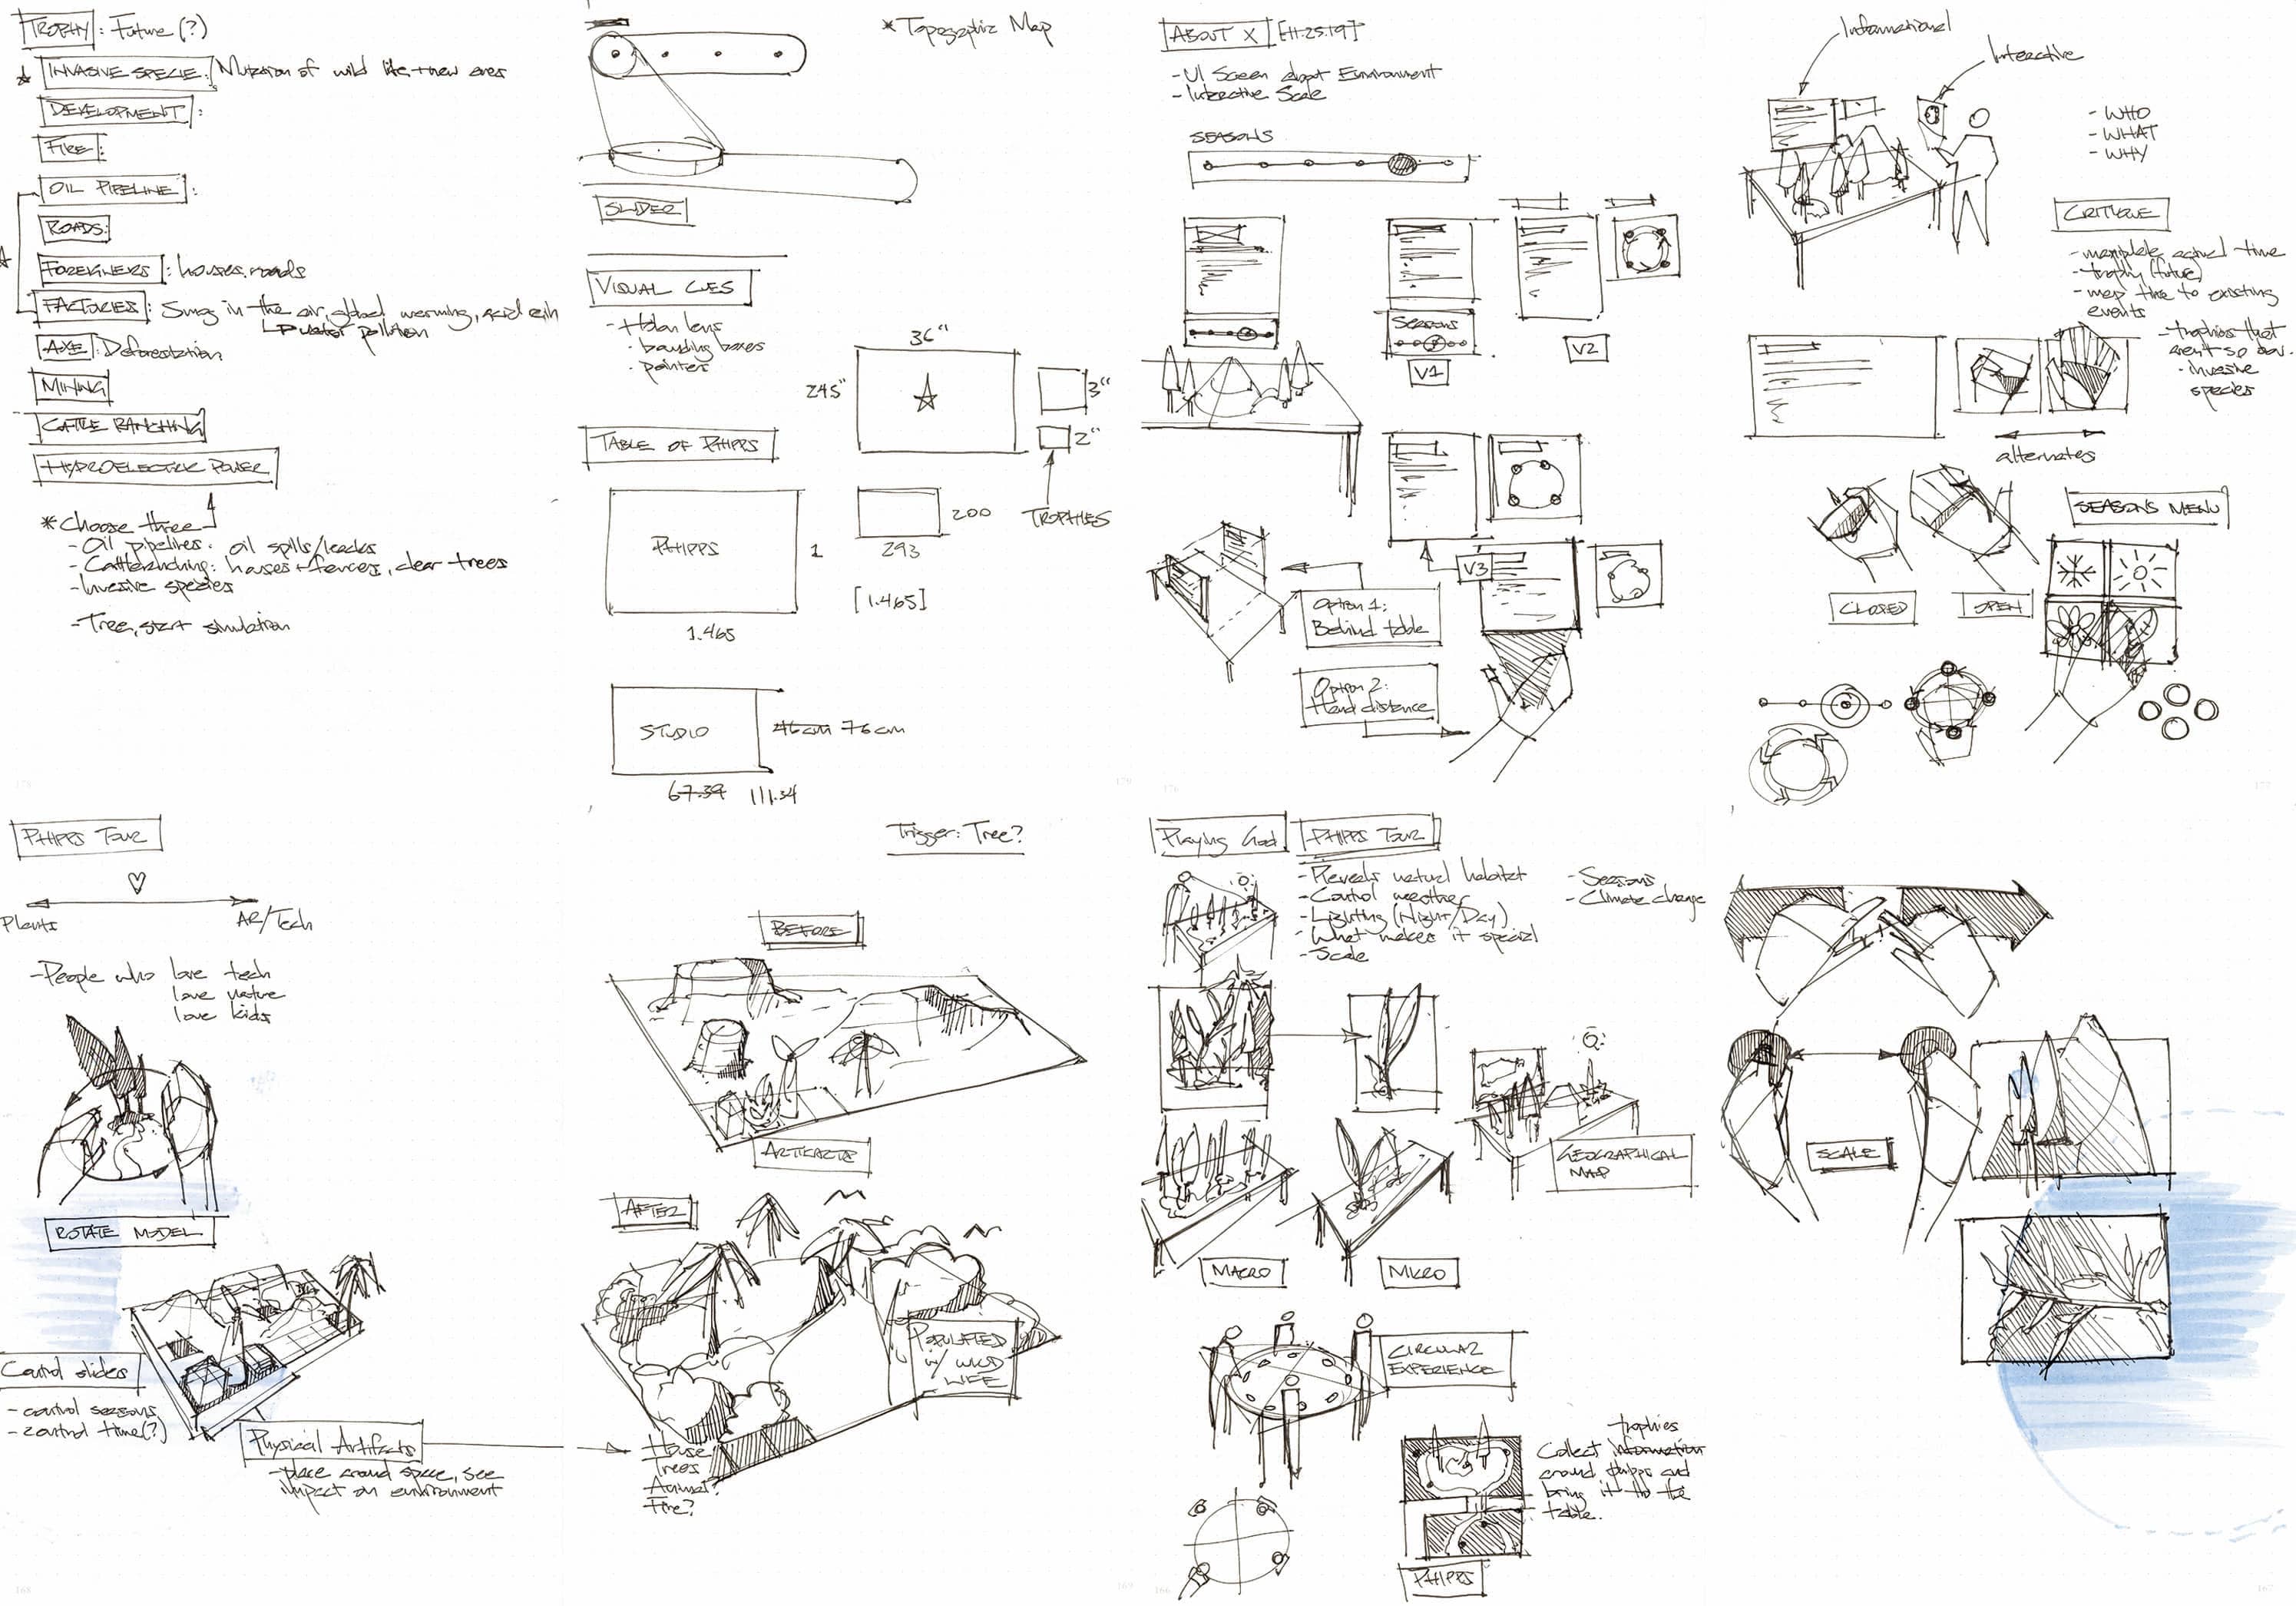 TROPHY: Future(?)
INVASIVE SPECIE: Mutation of wild life + new ones
DEVELOPMENT:
FIRE:
OIL PIPELINE:
ROADS:
FOREIGNERS: houses, roads
FACTORIES: Smog in the air, global warming, acid rain
water pollution
AXE: Deforestation
MINING
CATTLE RANCHING
HYDROELECTRIC POWER
*Choose three
- Oil pipelines: oil spills/leaks
- Cattle ranching: houses + fences, clear trees
- Invasive species
- Tree, start simulation
*Topographic Map
SLIDER
VISUAL CUES
- Holo lens
- bounding boxes
- pointers
36"
24.5"
3"
2"
TROPHIES
TABLE OF PHIPPS
PHIPPS
1
1.465
200
293
[1.465]
STUDIO
46cm 76cm
67.39 111.34
ABOUT X [11.25.19]
- UI Screen about Environment
- Interactive Scale
SEASONS
SEASONS
V1
V2
V3
Option 1:
Behind table
Option 2:
Hand distance
Informational
Interactive
- WHO
- WHAT
- WHY
CRITIQUE
- manipulate actual time
- trophy (future)
- map time to existing
events
- trophies that
aren't so
- invasive
species
alternates
CLOSED
OPEN
SEASONS MENU
PHIPPS TOUR
Plants
AR/Tech
- People who love tech
love nature
love kids
ROTATE MODEL
Control sliders
- control seasons
- control time(?)
Physical Artifacts
- place around space, see
impact on environment
Trigger: Tree?
BEFORE
ARTIFACTS
AFTER
POPULATED
w/ WILD
LIFE
House
Trees
Animal?
Fire?
Playing God
PHIPPS TOUR
- Reveals natural habitat
- Control weather
- Lighting (Night/Day)
- What makes it special
- Scale
- Seasons
- Climate change
GEOGRAPHICAL
MAP
MACRO
MICRO
CIRCULAR
EXPERIENCE
trophies
Collect information
around phipps and
bring it to the
table.
PHIPPS
SCALE